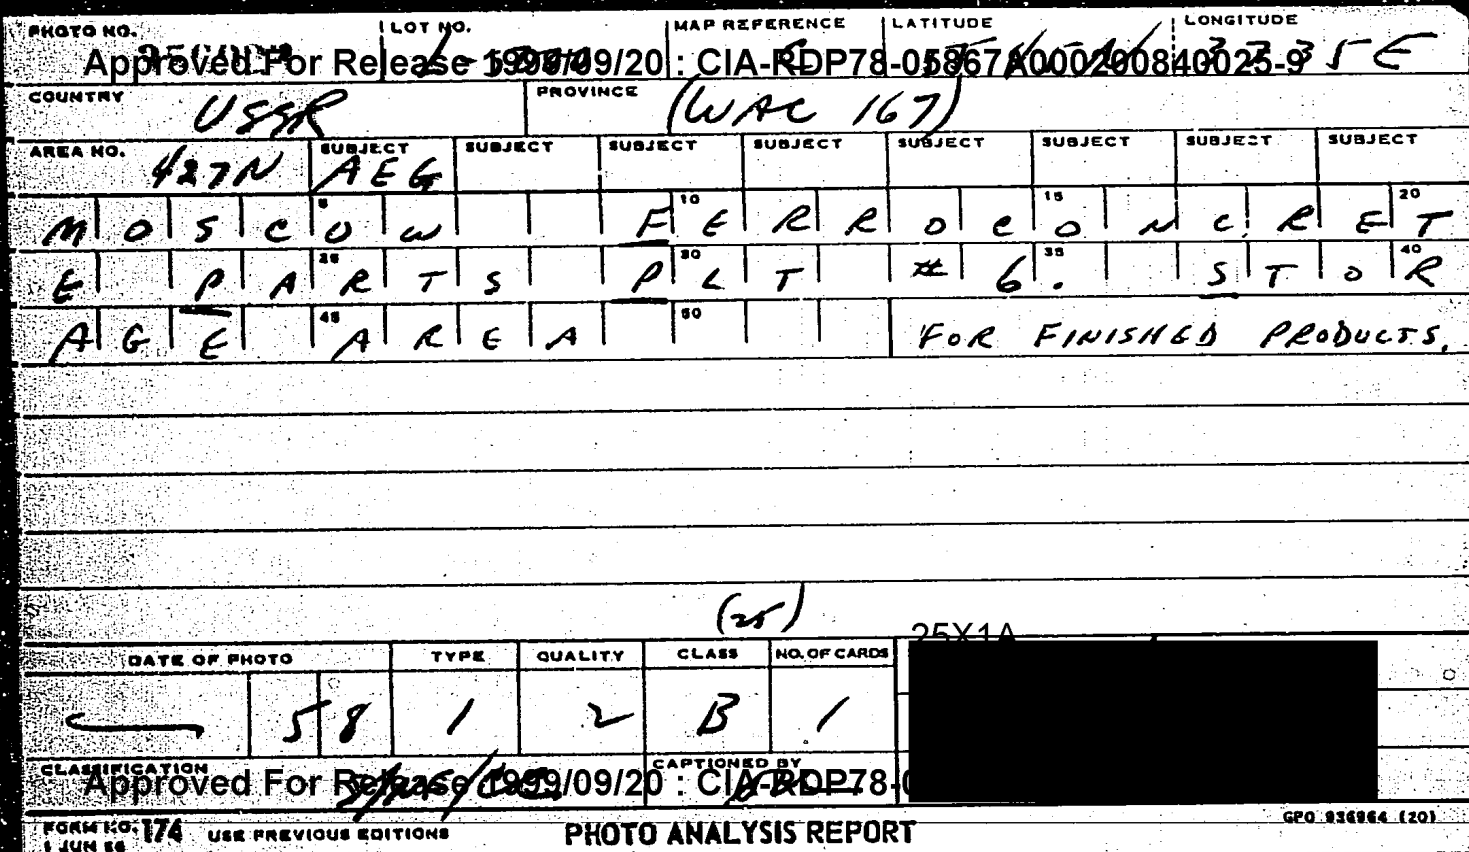 PHOTO NO. LOT NO. MAP REFERENCE LATITUDE LONGITUDE
Approved For Release 1999/09/20 : CIA-RDP78-05867A000200840025-9
COUNTRY USSR PROVINCE (WAC 167)
AREA NO. 427N SUBJECT AEG SUBJECT SUBJECT SUBJECT SUBJECT SUBJECT SUBJECT SUBJECT
5 10 15 20
MOSCOW FERROCONCRET
25 30 35 40
E PARTS PLT #6. STOR
45 50
AGE AREA FOR FINISHED PRODUCTS.
(25)
25X1A
DATE OF PHOTO TYPE QUALITY CLASS NO. OF CARDS
58 1 2 B 1
CLASSIFICATION CAPTIONED BY
Approved For Release 1999/09/20 : CIA-RDP78-0
FORM NO. 174 USE PREVIOUS EDITIONS PHOTO ANALYSIS REPORT GPO 936964 (20)
1 JUN 56